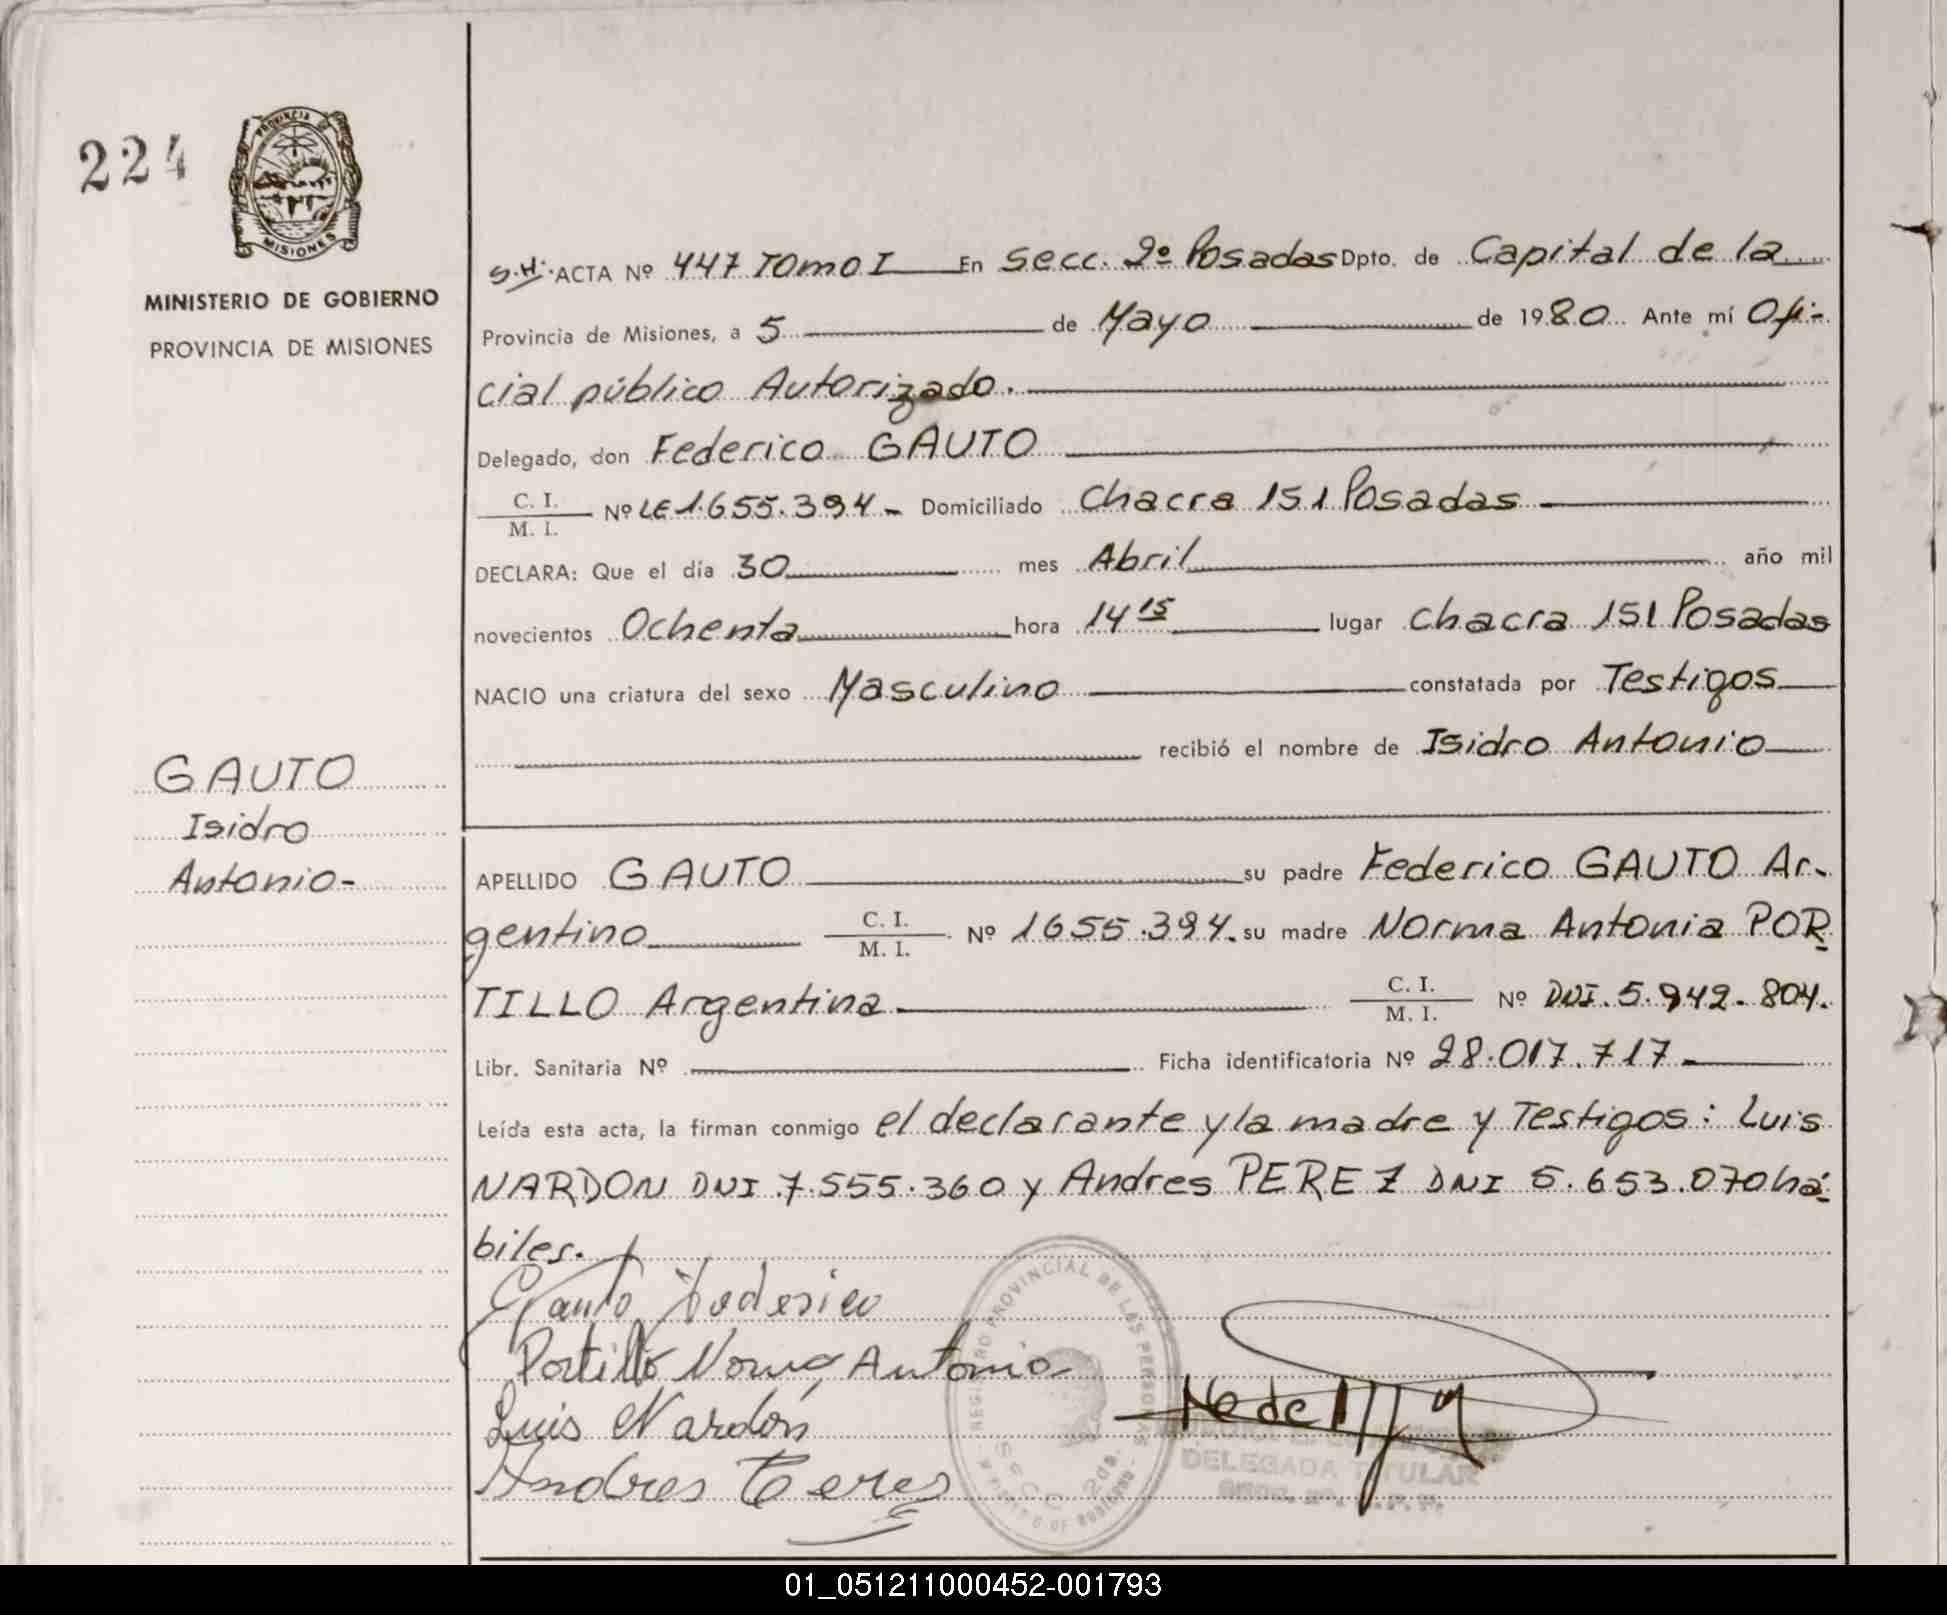 224
PROVINCIA DE
MISIONES
MINISTERIO DE GOBIERNO
PROVINCIA DE MISIONES
GAUTO
Isidro
Antonio-
S.H. ACTA Nº 447 Tomo I En Secc. 2º Posadas Dpto. de Capital de la
Provincia de Misiones, a 5 de Mayo de 1980 Ante mí Ofi-
cial público Autorizado.
Delegado, don Federico GAUTO
C. I.
M. I. Nº LE 1.655.394 - Domiciliado Chacra 151 Posadas
DECLARA: Que el día 30 mes Abril año mil
novecientos Ochenta hora 14 15 lugar Chacra 151 Posadas
NACIO una criatura del sexo Masculino constatada por Testigos
recibió el nombre de Isidro Antonio
APELLIDO GAUTO su padre Federico GAUTO Ar-
gentino C. I. M. I. Nº 1655.394. su madre Norma Antonia POR
TILLO Argentina C. I. M. I. Nº DNI. 5.942.804.
Libr. Sanitaria Nº Ficha identificatoria Nº 28.017.717-
Leída esta acta, la firman conmigo el declarante y la madre y Testigos: Luis
NARDON DNI 7.555.360 y Andres PEREZ DNI 5.653.070 há-
biles.
Gauto Federico
Portillo Norma Antonia
Luis Nardón
Andres Peres
REGISTRO PROVINCIAL DE LAS PERSONAS
SECC 2da.
DELEGADA TITULAR
01_051211000452-001793